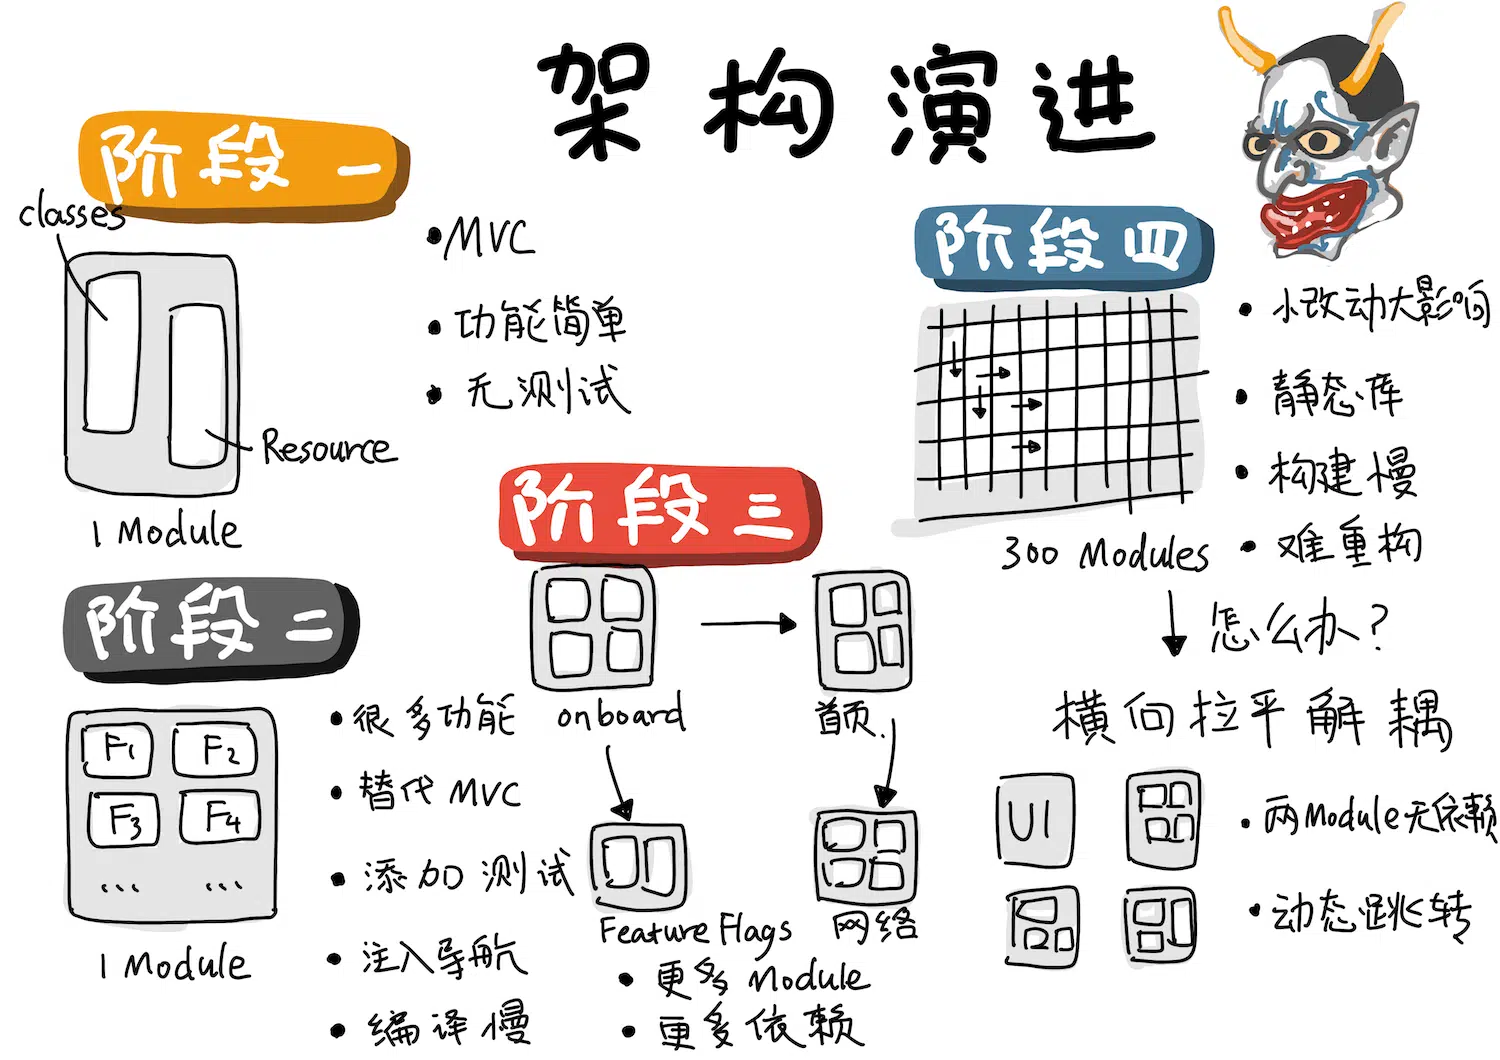 架构演进
阶段一
classes
Resource
1 Module
• MVC
• 功能简单
• 无测试
阶段二
F1 F2
F3 F4
... ...
1 Module
• 很多功能
• 替代 MVC
• 添加测试
• 注入导航
• 编译慢
阶段三
onboard
首页
Feature Flags
网络
• 更多 Module
• 更多依赖
阶段四
300 Modules
• 小改动大影响
• 静态库
• 构建慢
• 难重构
怎么办?
横向拉平解耦
UI
• 两Module无依赖
• 动态跳转